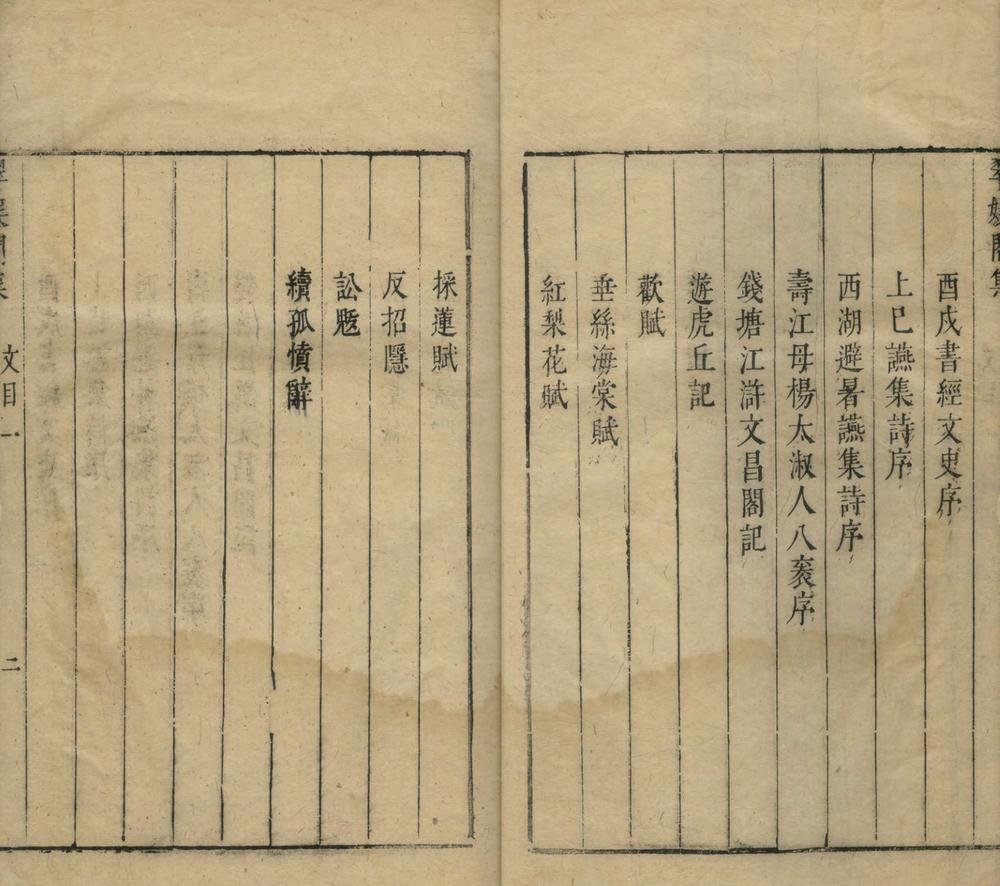 翠娛閣集
酉戌書經文史序
上巳讌集詩序
西湖避暑讌集詩序
壽江母楊太淑人八袠序
錢塘江滸文昌閣記
遊虎丘記
歡賦
垂絲海棠賦
紅梨花賦
採蓮賦
反招隱
訟魃
續孤憤辭
翠娛閣集 文目一 二